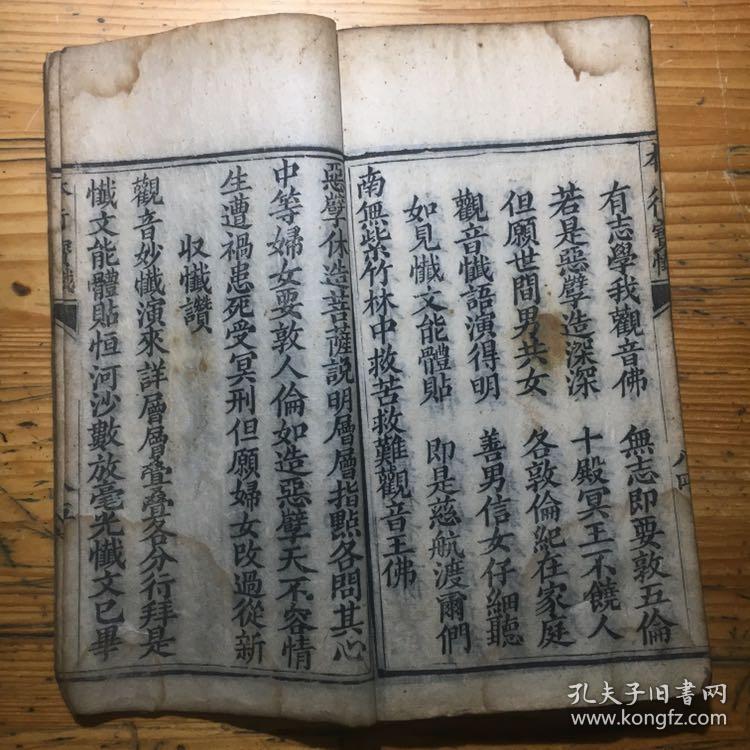 有志學我觀音佛 無志即要敦五倫
若是惡孽造深深 十殿冥王不饒人
但願世間男共女 各敦倫紀在家庭
觀音懺語演得明 善男信女仔細聽
如見懺文能體貼 即是慈航渡爾們
南無紫竹林中救苦救難觀音王佛
惡孽休造菩薩説明層層指點各問其心
中等婦女要敦人倫如造惡孽天不容情
生遭禍患死受冥刑但願婦女改過從新
收懺讚
觀音妙懺演來詳層層叠叠各分行拜是
懺文能體貼恒河沙數放毫光懺文已畢
孔夫子旧书网
www.kongfz.com